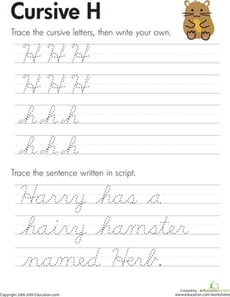 Cursive H
Trace the cursive letters, then write your own.
H H H
H H H
h h h
h h h
Trace the sentence written in script.
Harry has a
hairy hamster
named Herb.
Education.com
www.education.com/worksheets